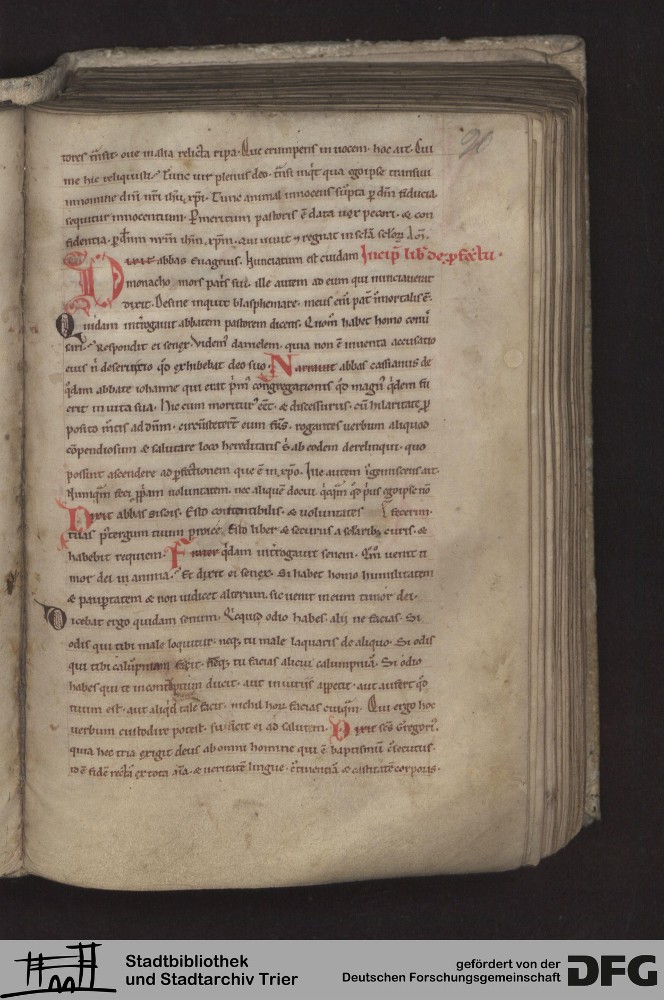 90
tores misit. oue maria relicta ripa. Que erumpens in uocem. hoc ait. Cui
me hic reliquisti? Tunc uir plenus deo. transi inquit qua ego ipse transiui
in nomine dni nri ihu xpi. Tunc animal innocens sumpta per dnm fiducia.
sequitur innocentium. Per meritum pastoris e data uox pecori. & con
fidentia. per dnm nrm ihm xpm. qui uiuit & regnat in scla sclor. am.
Dixit abbas euagrius. Nunciatum est cuidam Incip lib de pfectu.
monacho mors patris sui. ille autem ad eum qui nunciauerat
dixit. Desine inquit blasphemare. meus eni pat immortalis e.
Quidam interrogauit abbatem pastorem dicens. Quom habet homo conu
sari. Respondit ei senex. Videm danielem. quia non e inuenta accusatio
eius n deseruitio qd exhibebat deo suo. Narrauit abbas cassianus de
qdam abbate iohanne qui erat prim congregationis qd magn qdem fu
erit in uita sua. Hic cum moritur eet. & discessurus. cu hilaritate p
posito mentis ad dnm. circusteterunt eum frs. rogantes uerbum aliquod
copendiosum & salutare loco hereditatis s ab eodem derelinqui. quo
possint ascendere ad pfectionem que e in xpo. Ille autem ingemiscens ait.
Nunqm feci ppiam uoluntatem. nec alique docui qcqm qd pus ego ipse no
Dixit abbas sisois. Esto contentibilis. & uoluntates fecerim.
tuas p tergum tuum proice. Esto liber & securus a sclaribus curis. &
habebit requiem. Frater qdam interrogauit senem. Qm uenit ti
mor dei in anima. Et dixit ei senex. Si habet homo humilitatem
& paupertatem & non iudicet alterum. sic uenit in eum timor dei.
Dicebat ergo quidam senum. Quicquid odio habes. alii ne facias. Si
odis qui tibi male loquitur. neq tu male loquaris de aliquo. Si odis
qui tibi calupniam facit. Neq tu facias alicui calumpnia. Si odio
habes qui te in contemptum ducit. aut iniuriis appetit. aut aufert qd
tuum est. aut aliqd tale facit. nichil hor facias cuiqm. Qui ergo hoc
uerbum custodire potest. sufficit ei ad salutem. Dixit scs Gregori.
quia hec tria exigit deus ab omni homine qui e baptismu secutus.
id e fide recta ex tota aia. & ueritate lingue. & tinentia & castitate corporis.
Stadtbibliothek
und Stadtarchiv Trier
gefördert von der
Deutschen Forschungsgemeinschaft
DFG